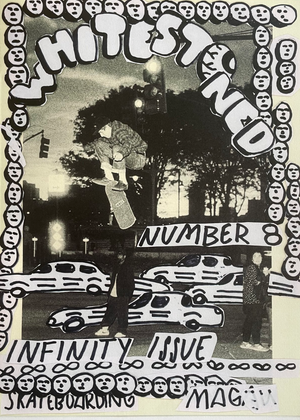 WHITESTONED
NUMBER 8
INFINITY ISSUE
SKATEBOARDING